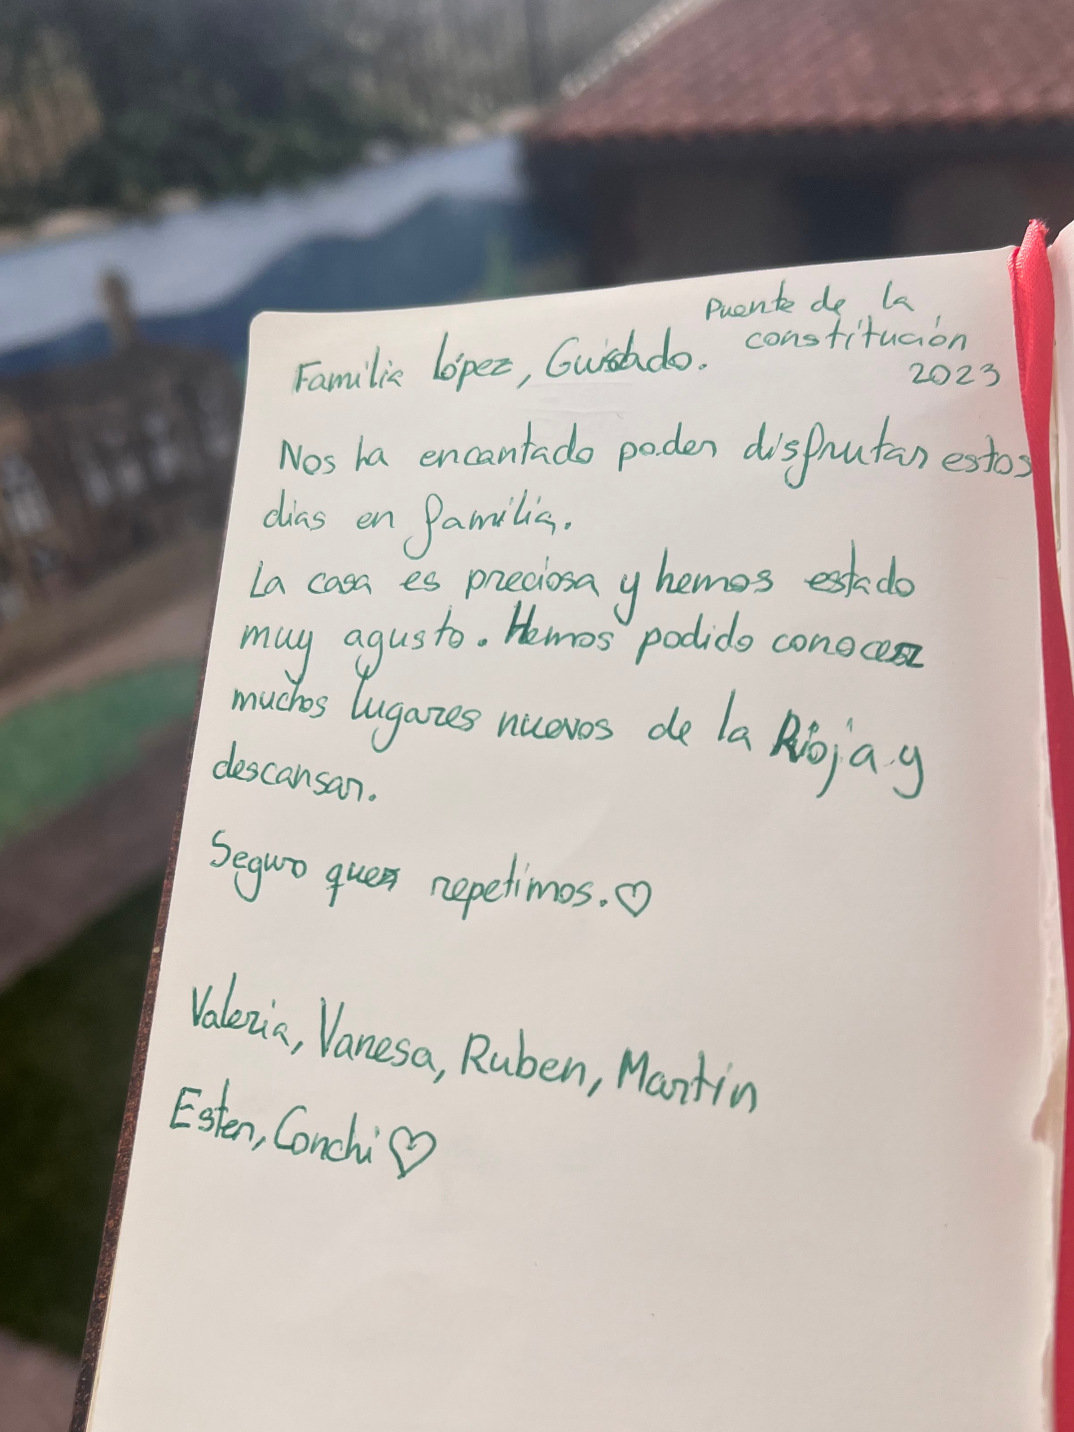 Puente de la
constitución
2023
Familia López, Guisado.
Nos ha encantado poder disfrutar estos
dias en familia.
La casa es preciosa y hemos estado
muy agusto. Hemos podido conocer
muchos lugares nuevos de la Rioja y
descansar.
Seguro que repetimos.♡
Valeria, Vanesa, Ruben, Martín
Ester, Conchi♡